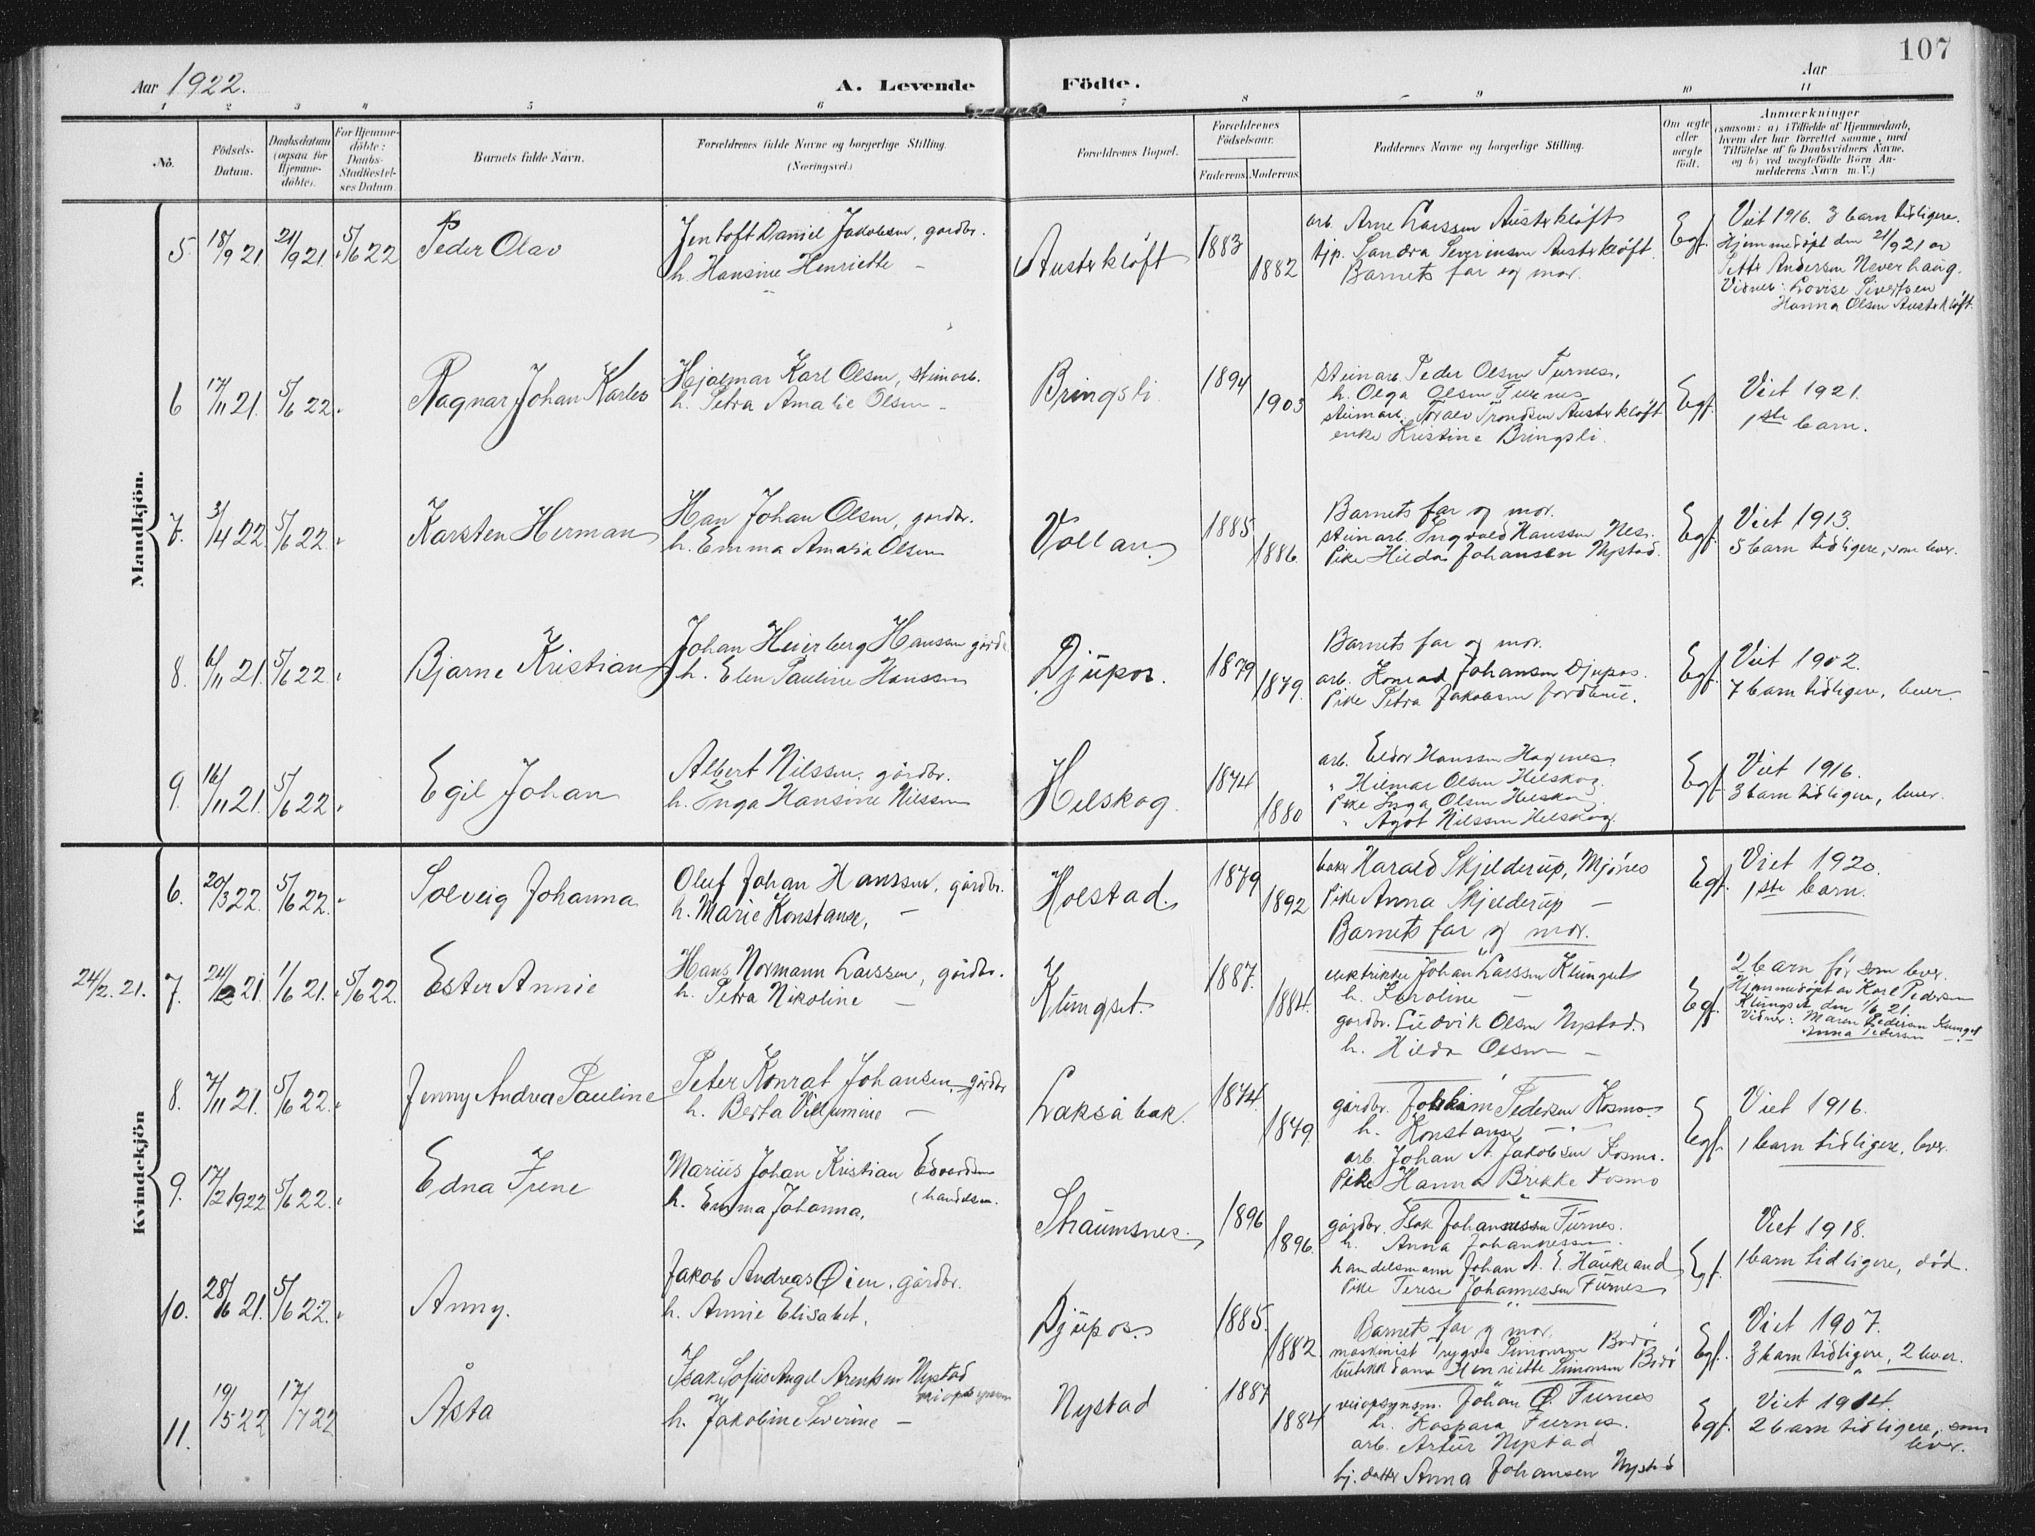 107
Aar 1922.
A. Levende Födte.
Aar
1 2 3 4 5 6 7 8 9 10 11
No.
Födsels-
Datum.
Daabsdatum
(ogsaa for
Hjemme-
döbte).
For Hjemme-
döbte:
Daabs-
Stadfæstel-
ses Datum.
Barnets fulde Navn.
Forældrenes fulde Navne og borgerlige Stilling.
(Næringsvei.)
Forældrenes Bopæl.
Forældrenes
Födselsaar.
Faderens. Moderens.
Faddernes Navne og borgerlige Stilling.
Om ægte
eller
uægte
födt.
Anmærkninger
(saasom: a) i Tilfælde af Hjemmedaab,
hvem der har forrettet samme, med
Tilföielse af to Daabsvidners Navne,
og b) ved uægtefödte Börn An-
melderens Navn m. V.)
Mandkjön.
5 18/9 21 21/9 21 5/6 22 Peder Olav
Jentoft Daniel Jakobsen, gardbr.
h. Hansine Henriette –
Austerkløft 1883 1882
arb. Arne Larssen Austerkløft
tjp. Sandra Severinsen Austerkløft.
Barnets far og mor.
Egf.
Viet 1916. 3 barn tidligere.
Hjemmedøpt den 21/9 21 av
Petter Andersen Neverhaug.
Vidner: Lovise Sivertsen
Hanna Olsen Austerkløft.
6 17/11 21. 5/6 22. Ragnar Johan Karlev
Hjalmar Karl Olsen, stenarb.
h. Petra Amalie Olsen –
Bringsli. 1894 1903
stenarb. Peder Olsen Furnes.
h. Olga Olsen Furnes
stenarb. Toralv Trondsen Austerkløft
enke Kristine Bringsli.
Egf.
Viet 1921.
1ste barn.
7. 3/4 22 5/6 22. Karsten Herman
Han Johan Olsen, gardbr.
h. Emma Amalia Olsen
Vollan. 1885 1886.
Barnets far og mor.
stenarb. Ingvald Hanssen Nes.
Pike Hilda Johansen Nystad.
Egf.
Viet 1913.
5 barn tidligere, som lever.
8. 6/11 21. 5/6 22. Bjarne Kristian
Johan Heierberg Hanssen gardb.
h. Elen Pauline Hanssen
Djupos. 1879 1879.
Barnets far og mor.
arb. Konrad Johansen Djupos.
Pike Petra Jakobsen
Egf.
Viet 1902.
7 barn tidligere, lever.
9. 16/11 21. 5/6 22. Egil Johan
Albert Nilssen, gårdbr.
h. Inga Hansine Nilssen
Helskog. 1874 1880
arb. Eldor Hanssen Hagenes.
" Hilmar Olsen Helskog.
Pike Inga Olsen Helskog.
" Agot Nilssen Helskog.
Egf.
Viet 1916.
3 barn tidligere, lever.
Kvindekjön
6. 20/3 22. 5/6 22. Solveig Johanna
Oluf Johan Hanssen, gårdbr.
h. Marie Konstanse, –
Holstad. 1879 1892
Harald Skjelderup, Mjønes
Pike Anna Skjelderup –
Barnets far og mor.
Egf.
Viet 1920.
1ste barn.
24/2. 21. 7. 24/2 21. 1/6 21. 5/6 22. Ester Annie
Hans Normann Larssen, gårdbr.
h. Petra Nikoline –
Klungset. 1887. 1884.
elektriker Johan Larssen Klungset
h. Karoline –
gardbr. Ludvik Olsen Nystad.
h. Hilda Olsen –
Egf.
2 barn før som lever.
Hjemmedøpt av Karl Pedersen
Klungset den 1/6 21.
Vidner: Maren Pedersen Klungset
Anna Pedersen –
8. 7/11 21. 5/6 22. Jenny Andrea Pauline
Peter Konrat Johansen, gårdbr
h. Berta Villumine –
Laksåbak. 1874. 1879
gårdbr. Joakim Pedersen Kosmo
h. Konstanse –
arb. Johan A. Jakobsen Kosmo.
Pike Hanna Brikke Fosmo
Egf.
Viet 1916.
1 barn tidligere, lever.
9. 17/2 1922 5/6 22. Edna Irene
Marius Johan Kristian Edvardsen
h. Emma Johanna. (handelsm.
Straumsnes. 1896 1896.
gårdbr. Isak Johannessen Furnes.
h. Anna Johannessen.
handelsmann Johan A. E. Haukland
Pike Terese Johannessen Furnes
Egf.
Viet 1918.
1 barn tidligere, død.
10. 28/6 21. 5/6 22. Anny.
Jakob Andreas Øien, gårdbr.
h. Annie Elisabet.
Djupos. 1885. 1882
Barnets far og mor.
maskinist Trygve Simonsen Bodø
butikkdame Henriette Simonsen Bodø
Egf.
Viet 1907.
3 barn tidligere, 2 lever.
11. 19/5 22 17/7 22 Åsta
Isak Sofus Angel Arentsen Nystad
veiopsynsm
h. Jakobine Severine –
Nystad 1887 1884
veiopsynsm. Johan O. Furnes
h. Kaspara Furnes.
arb. Artur Nystad
hj. datter Anna Johansen Nystad
Egf.
Viet 1914.
2 barn tidligere, som
lever.